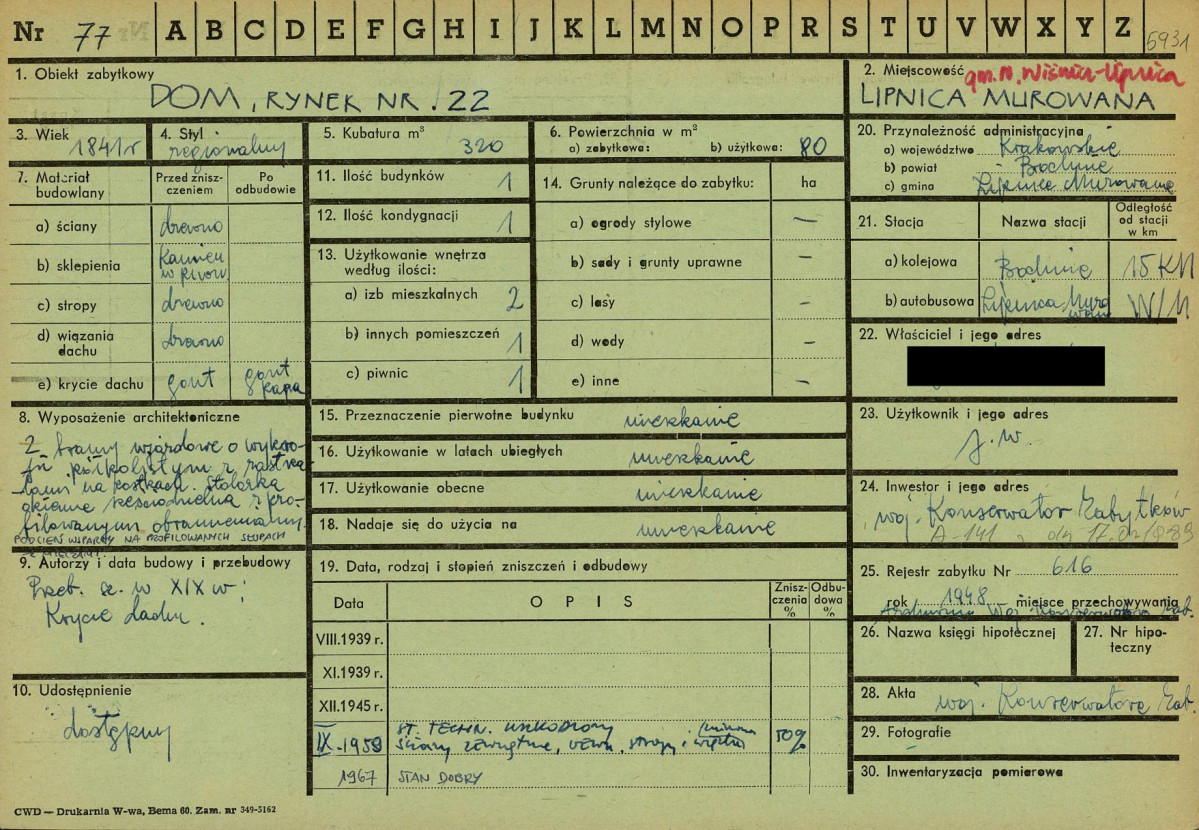 Nr 77 A B C D E F G H I J K L M N O P R S T U V W X Y Z 5931
1. Obiekt zabytkowy
DOM, RYNEK NR. 22
2. Miejscowość gm. N. Wiśnicz-Lipnica
LIPNICA MUROWANA
3. Wiek
1841 r
4. Styl
regionalny
5. Kubatura m³
320
6. Powierzchnia w m²
a) zabytkowa: b) użytkowa: 80
7. Materiał budowlany
Przed zniszczeniem
Po odbudowie
a) ściany drewno
b) sklepienia kamień w piwn.
c) stropy drewno
d) wiązania dachu drewno
e) krycie dachu gont gont
8. Wyposażenie architektoniczne
2 bramy wjazdowe o wykroju półkolistym z
na kostkach. Stolarka
okienna sześciodzielna z profilowanym
PODCIEŃ WSPARTY NA PROFILOWANYCH SŁUPACH
9. Autorzy i data budowy i przebudowy
Przeb. sz. w XIX w;
Krycie dachu.
10. Udostępnienie
dostępny
11. Ilość budynków 1
12. Ilość kondygnacji 1
13. Użytkowanie wnętrza według ilości:
a) izb mieszkalnych 2
b) innych pomieszczeń 1
c) piwnic 1
14. Grunty należące do zabytku: ha
a) ogrody stylowe —
b) sady i grunty uprawne –
c) lasy –
d) wody –
e) inne –
15. Przeznaczenie pierwotne budynku mieszkanie
16. Użytkowanie w latach ubiegłych mieszkanie
17. Użytkowanie obecne mieszkanie
18. Nadaje się do użycia na mieszkanie
19. Data, rodzaj i stopień zniszczeń i odbudowy
Data
O P I S
Zniszczenia %
Odbudowa %
VIII.1939 r.
XI.1939 r.
XII.1945 r.
IX-1959 ST. TECHN. USZKODZONY
ściany zewnętrzne, wewn, stropy, 50%
1967 STAN DOBRY
20. Przynależność administracyjna
a) województwo Krakowskie
b) powiat Bochnia
c) gmina Lipnica Murowana
21. Stacja
Nazwa stacji
Odległość od stacji w km
a) kolejowa Bochnia 15 KM
b) autobusowa Lipnica Murowana W/M
22. Właściciel i jego adres
23. Użytkownik i jego adres
j. w.
24. Inwestor i jego adres
woj. Konserwator Zabytków
A-141 z dn 17.02.1989
25. Rejestr zabytku Nr 616
rok 1948 miejsce przechowywania
Archiwum Woj. Konserwatora Zab.
26. Nazwa księgi hipotecznej
27. Nr hipoteczny
28. Akta woj. Konserwatora Zab.
29. Fotografie
30. Inwentaryzacja pomiarowa
CWD — Drukarnia W-wa, Bema 60. Zam. nr 349-5162